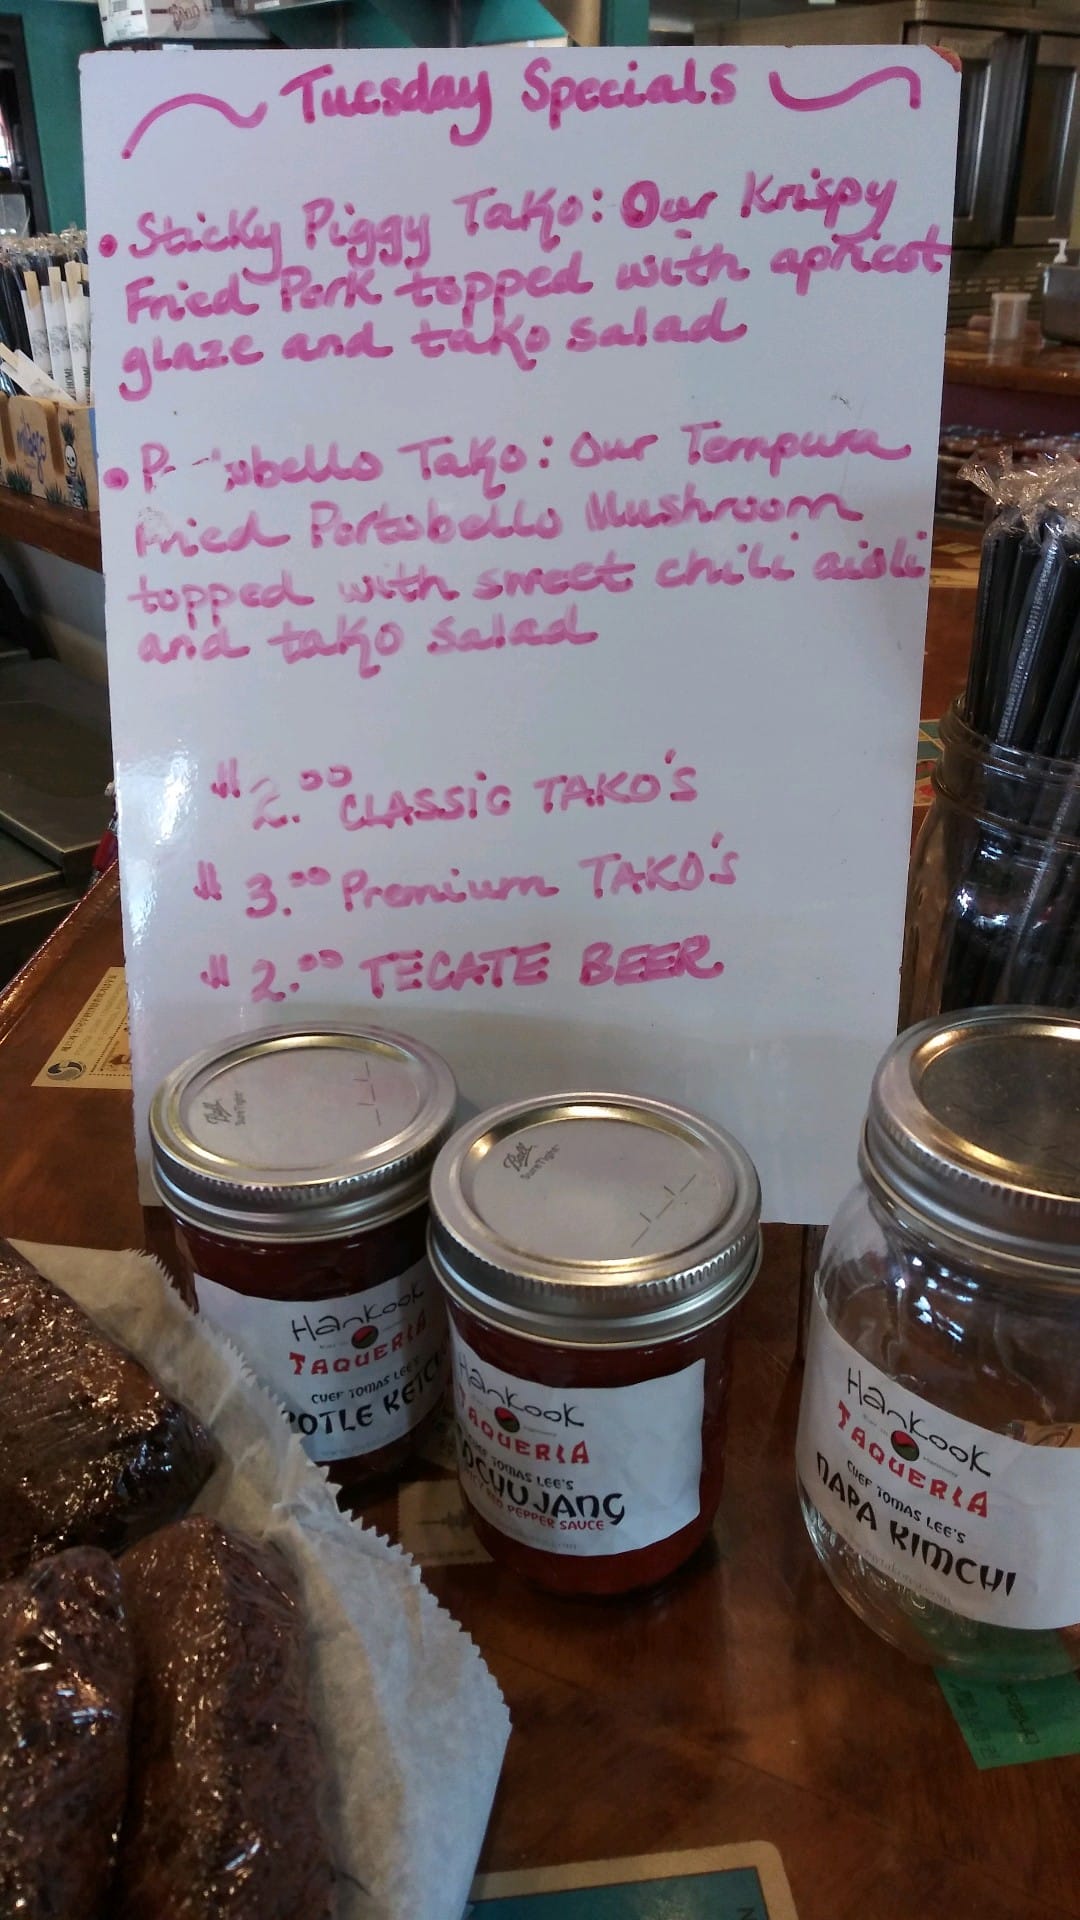 Tuesday Specials
• Sticky Piggy Tako: Our Krispy
Fried Pork topped with apricot
glaze and tako salad
• Tako: Our Tempura
Fried Portobello Mushroom
topped with sweet chili aioli
and tako salad
$2.00 CLASSIC TAKO'S
$3.00 Premium TAKO'S
$2.00 TECATE BEER
Ball
SureTight
Ball
SureTight
HanKooK
TAQUERIA
CHEF TOMAS LEE'S
HanKooK
TAQUERIA
CHEF TOMAS LEE'S
PEPPER SAUCE
HanKooK
TAQUERIA
CHEF TOMAS LEE'S
NAPA KIMCHI